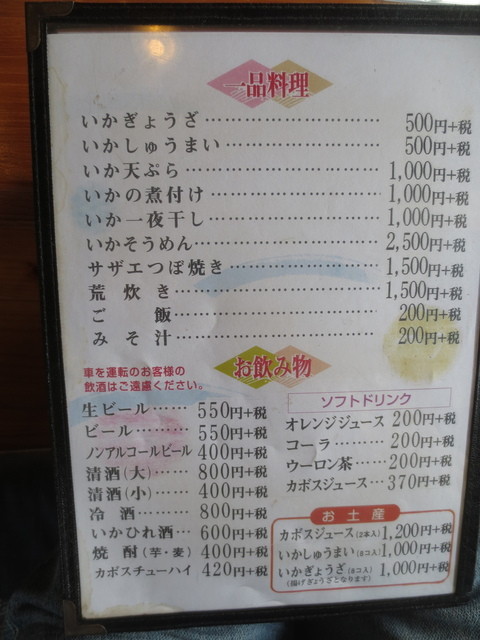 一品料理
いかぎょうざ……………………500円+税
いかしゅうまい…………………500円+税
いか天ぷら………………………1,000円+税
いかの煮付け……………………1,000円+税
いか一夜干し……………………1,000円+税
いかそうめん……………………2,500円+税
サザエつぼ焼き…………………1,500円+税
荒炊き……………………………1,500円+税
ご飯………………………………200円+税
みそ汁……………………………200円+税
お飲み物
車を運転のお客様の
飲酒はご遠慮ください。
生ビール……550円+税
ビール………550円+税
ノンアルコールビール 400円+税
清酒(大)…800円+税
清酒(小)…400円+税
冷酒………800円+税
いかひれ酒…600円+税
焼酎(芋・麦) 400円+税
カボスチューハイ 420円+税
ソフトドリンク
オレンジジュース 200円+税
コーラ………200円+税
ウーロン茶……200円+税
カボスジュース…370円+税
お土産
カボスジュース(2本入)1,200円+税
いかしゅうまい(8コ入)1,000円+税
いかぎょうざ(8コ入)1,000円+税
(揚げぎょうざとなります)